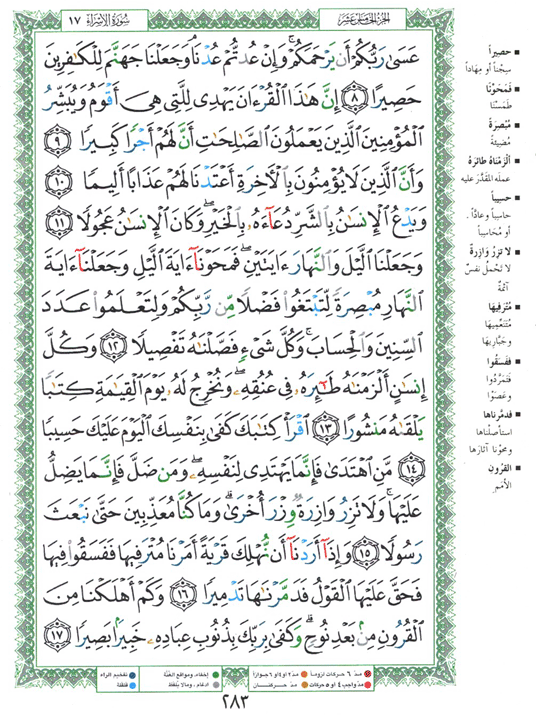 الجزء الخامس عشر
سورة الإسراء ١٧
عَسَىٰ رَبُّكُمْ أَن يَرْحَمَكُمْ ۚ وَإِنْ عُدتُّمْ عُدْنَا ۘ وَجَعَلْنَا جَهَنَّمَ لِلْكَافِرِينَ
حَصِيرًا ٨ إِنَّ هَٰذَا الْقُرْءَانَ يَهْدِى لِلَّتِى هِىَ أَقْوَمُ وَيُبَشِّرُ
الْمُؤْمِنِينَ الَّذِينَ يَعْمَلُونَ الصَّالِحَاتِ أَنَّ لَهُمْ أَجْرًا كَبِيرًا ٩
وَأَنَّ الَّذِينَ لَا يُؤْمِنُونَ بِالْأَخِرَةِ أَعْتَدْنَا لَهُمْ عَذَابًا أَلِيمًا ١٠
وَيَدْعُ الْإِنسَٰنُ بِالشَّرِّ دُعَآءَهُۥ بِالْخَيْرِ ۖ وَكَانَ الْإِنسَٰنُ عَجُولًا ١١
وَجَعَلْنَا الَّيْلَ وَالنَّهَارَ ءَايَتَيْنِ ۖ فَمَحَوْنَآ ءَايَةَ الَّيْلِ وَجَعَلْنَآ ءَايَةَ
النَّهَارِ مُبْصِرَةً لِّتَبْتَغُوا۟ فَضْلًا مِّن رَّبِّكُمْ وَلِتَعْلَمُوا۟ عَدَدَ
السِّنِينَ وَالْحِسَابَ ۚ وَكُلَّ شَىْءٍ فَصَّلْنَٰهُ تَفْصِيلًا ١٢ وَكُلَّ
إِنسَٰنٍ أَلْزَمْنَٰهُ طَٰٓئِرَهُۥ فِى عُنُقِهِۦ ۖ وَنُخْرِجُ لَهُۥ يَوْمَ الْقِيَٰمَةِ كِتَٰبًا
يَلْقَىٰهُ مَنشُورًا ١٣ اقْرَأْ كِتَٰبَكَ كَفَىٰ بِنَفْسِكَ الْيَوْمَ عَلَيْكَ حَسِيبًا
١٤ مَّنِ اهْتَدَىٰ فَإِنَّمَا يَهْتَدِى لِنَفْسِهِۦ ۖ وَمَن ضَلَّ فَإِنَّمَا يَضِلُّ
عَلَيْهَا ۚ وَلَا تَزِرُ وَازِرَةٌ وِزْرَ أُخْرَىٰ ۗ وَمَا كُنَّا مُعَذِّبِينَ حَتَّىٰ نَبْعَثَ
رَسُولًا ١٥ وَإِذَآ أَرَدْنَآ أَن نُّهْلِكَ قَرْيَةً أَمَرْنَا مُتْرَفِيهَا فَفَسَقُوا۟ فِيهَا
فَحَقَّ عَلَيْهَا الْقَوْلُ فَدَمَّرْنَٰهَا تَدْمِيرًا ١٦ وَكَمْ أَهْلَكْنَا مِنَ
الْقُرُونِ مِنۢ بَعْدِ نُوحٍ ۗ وَكَفَىٰ بِرَبِّكَ بِذُنُوبِ عِبَادِهِۦ خَبِيرًۢا بَصِيرًا ١٧
■ حصيراً
سِجْناً أو مِهَاداً
■ فمحونا
طمسْنا
■ مبصرة
مُضيئة
■ ألزمناه طائره
عمله المقدّر عليه
■ حسيباً
حاسباً وعادّاً.
أو مُحاسِباً
■ لا تزر وازرة
لا تحمل نفسٌ
آثمةٌ
■ مترفيها
مُتنعّميها
وجبّاريها
■ ففسقوا
فتمرّدوا
وعصَوْا
■ فدمرناها
استأصلناها
ومحونا آثارها
■ القرون
الأمم
مدّ ٦ حركات لزوماً مدّ ٢ أو ٤ أو ٦ جوازاً
مدّ واجب ٤ أو ٥ حركات مدّ حركتان
إخفاء، ومواقع الغُنَّة
ادغام، وما لا يُلفظ
تفخيم الراء
قلقلة
٢٨٣